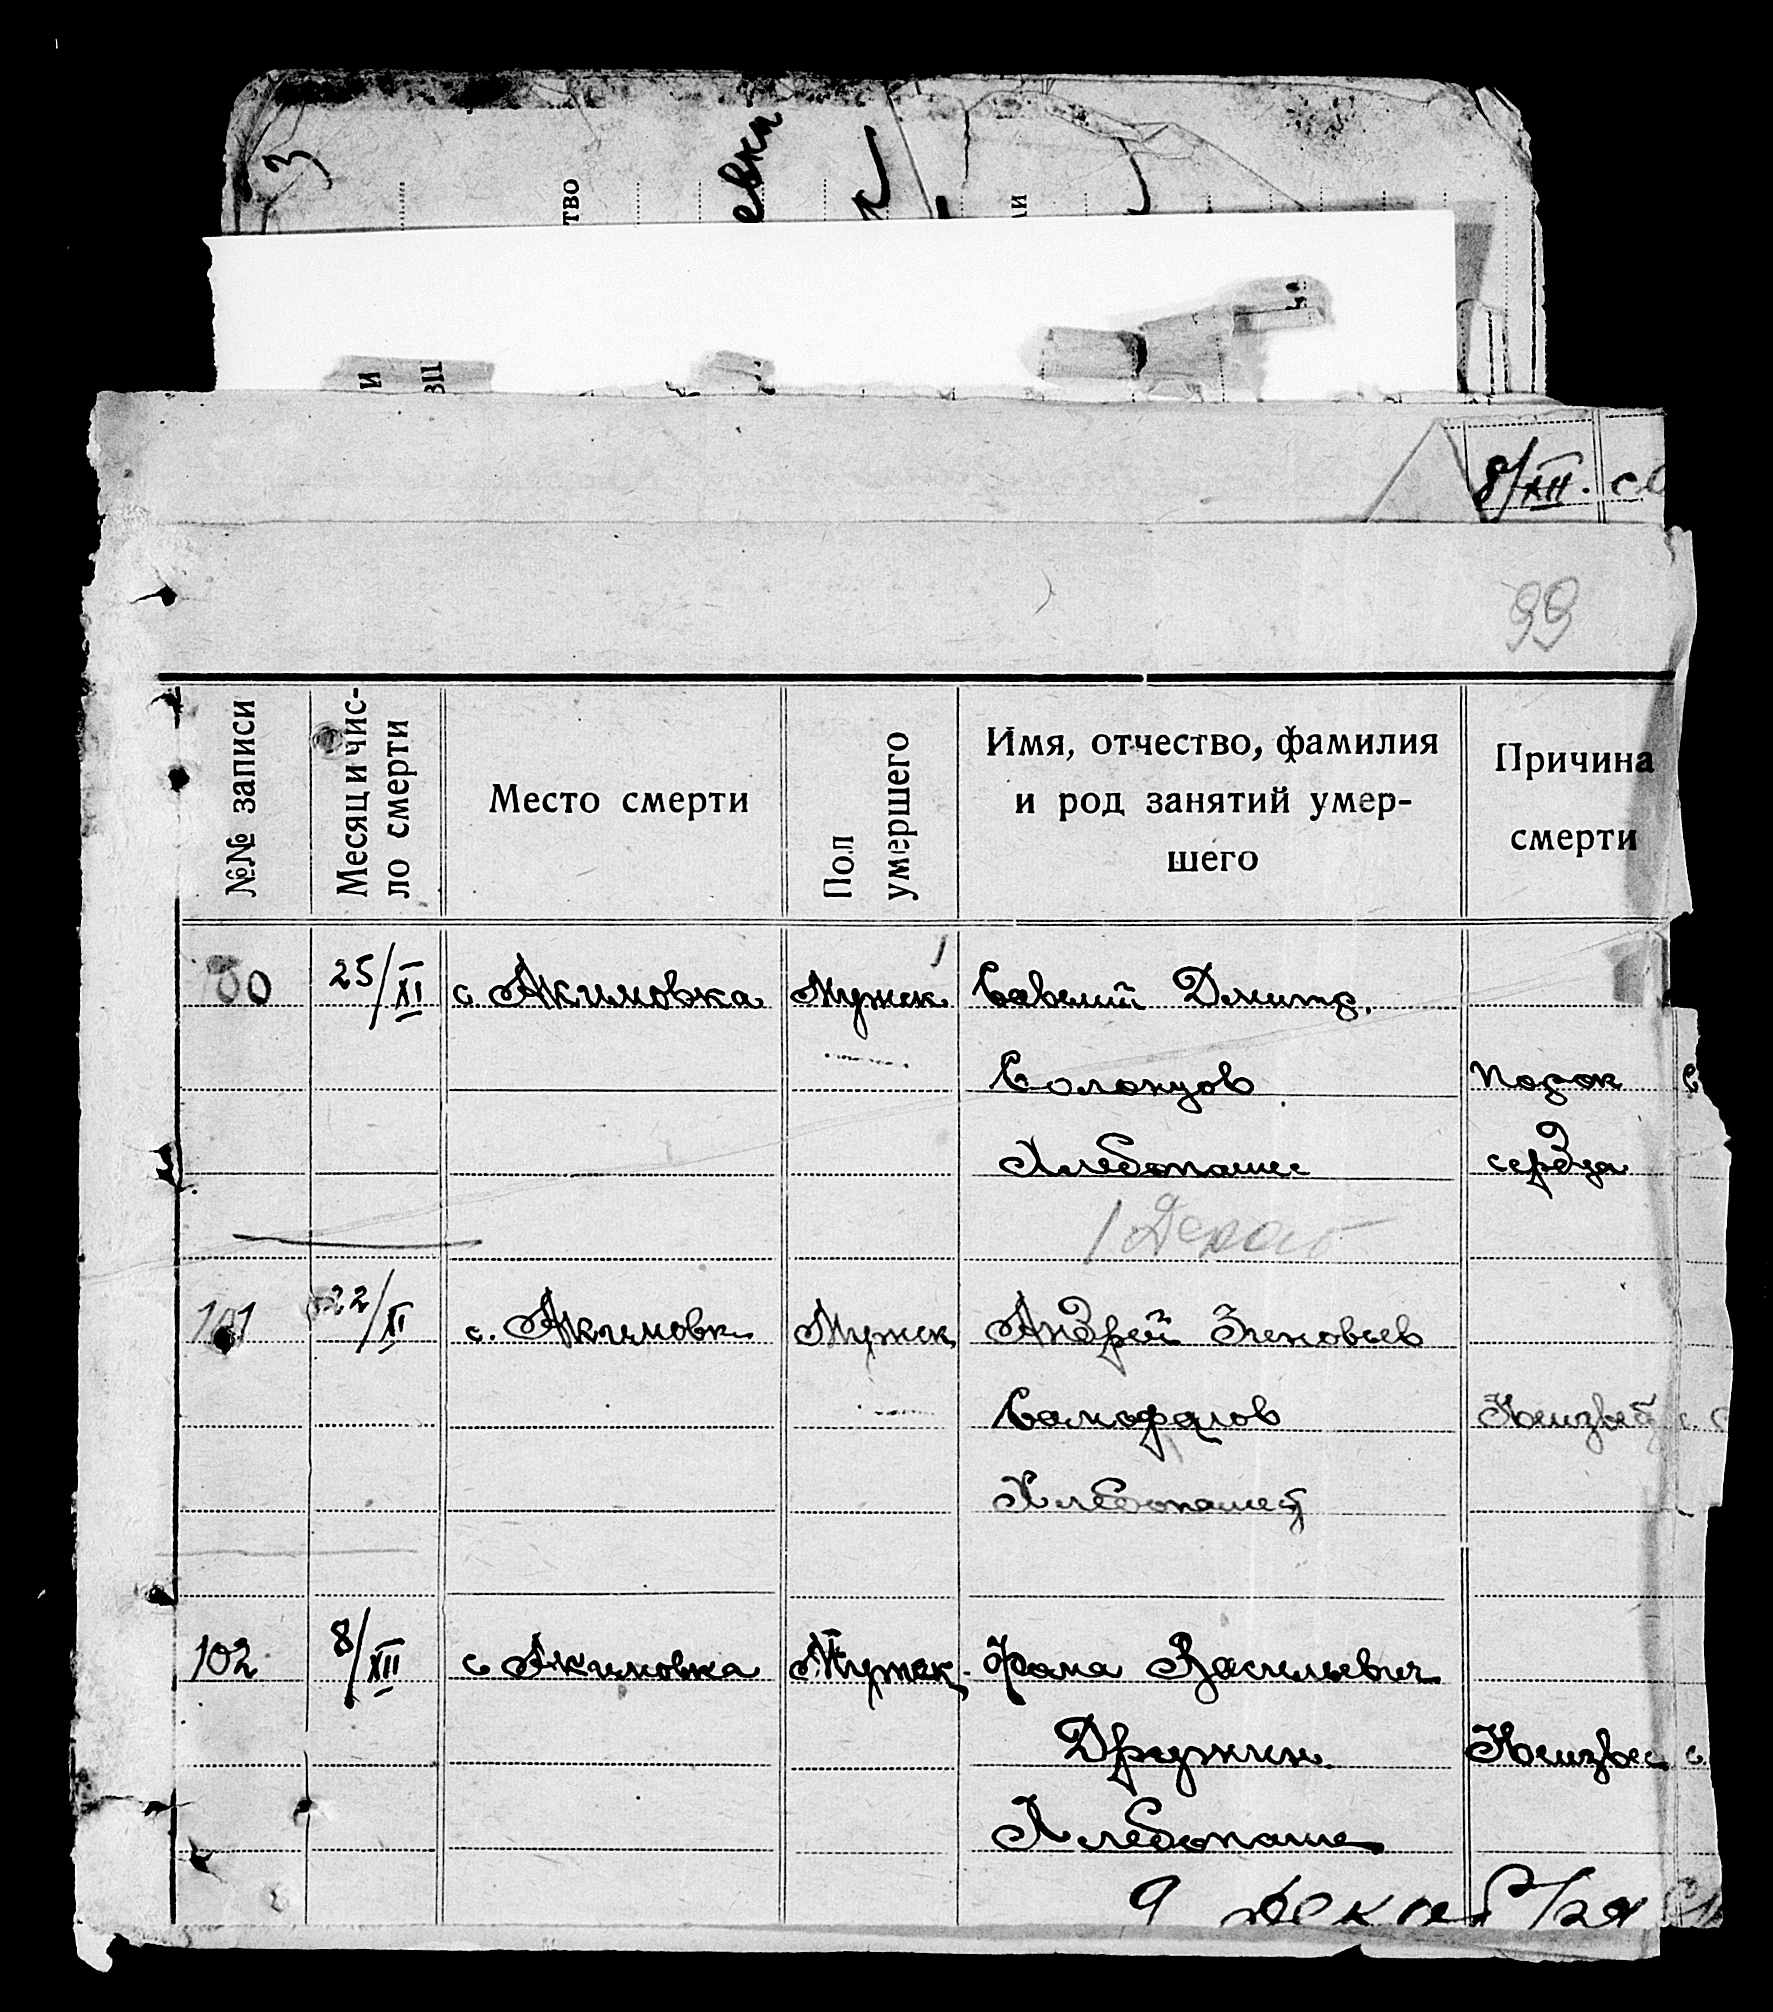 3
тво
евки
ли
и
8/XII. с
99
№№ записи
Месяц и чис-
ло смерти
Место смерти
Пол
умершего
Имя, отчество, фамилия
и род занятий умер-
шего
Причина
смерти
100 25/XI с. Акимовка Мужск Савелий Дмитр.
Солонцов Порок
Хлебопашес сердца
101 22/XI с. Акимовк Мужск Андрей Зиновьев
Самофалов Неизвест
Хлебопашец
102 8/XII с Акимовка Мужск. Фома Васильевич
Дружин. Неизвес
Хлебопаше
9 декабря